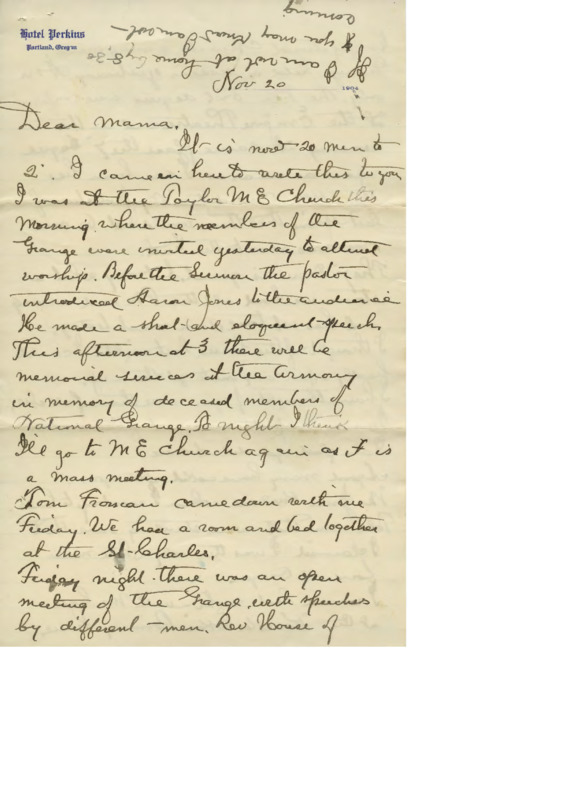 Hotel Perkins
Portland, Oregon
If I am not at home by 8,30
you may know I am not
coming
Nov 20
1904
Dear Mama,
It is now 20 min to
2. I came in here to write this to you
I was at the Taylor M E Church this
morning, where the members of the
Grange were invited yesterday to attend
worship. Before the Sermon the pastor
introduced Aaron Jones to the audience
He made a short and eloquent speech.
This afternoon at 3 there will be
memorial services at the Armory
in memory of deceased members of
National Grange. To night I think
I'll go to M E Church again as it is
a mass meeting.
Tom came down with me
Friday. We had a room and bed together
at the St. Charles.
Friday night there was an open
meeting of the Grange with speeches
by different men. Rev House of